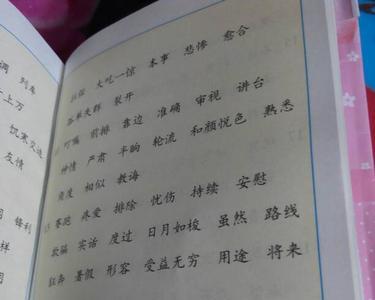 大吃一惊 本事 悲惨 愈合
孤单失群 裂开
叮嘱 前排 靠边 准确 审视 讲台
神情 严肃 半晌 轮流 和颜悦色 熟悉
角度 相似 教诲
赛跑 疼爱 排除 忧伤 持续 安慰
欺骗 实话 度过 日月如梭 虽然 路线
狂奔 暑假 形容 受益无穷 用途 将来
调 列车
上万
饥寒交迫
友情
锋利
样